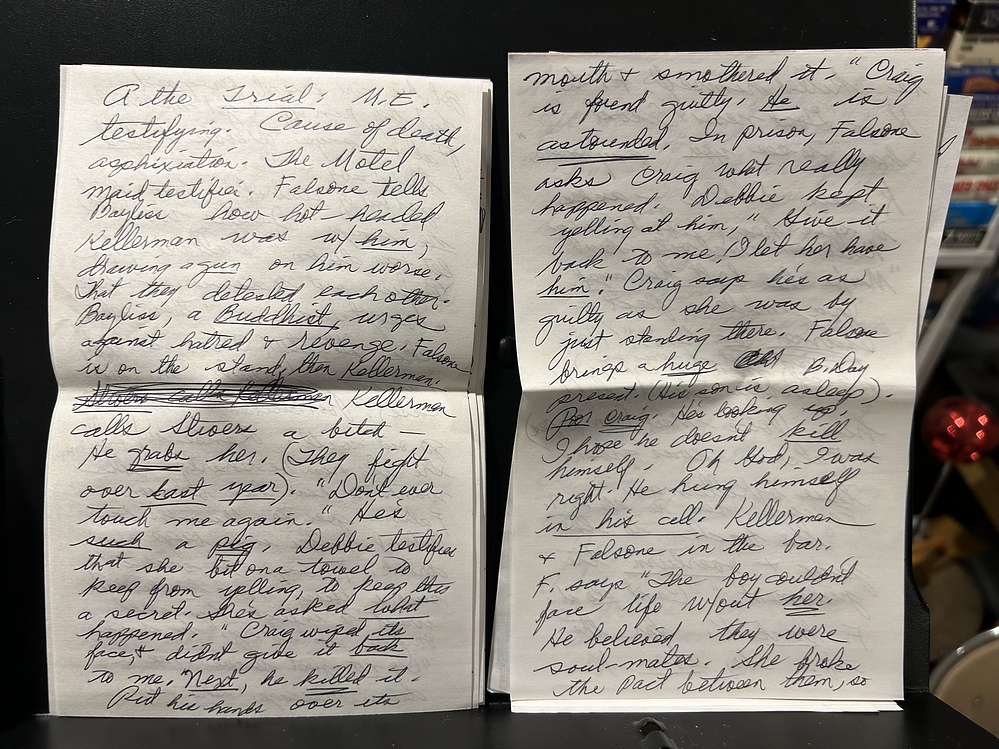 A the Trial. M.E.
testifying. Cause of death,
asphixiation. The Motel
maid testifies. Falsone tells
Bayliss how hot-headed
Kellerman was w/ him,
drawing a gun on him worse.
That they detested each other.
Bayliss, a Buddhist, urges
against hatred & revenge. Falsone
is on the stand, then Kellerman.
Stivers calls Kellerman Kellerman
calls Stivers a bitch —
He grabs her. (They fight
over last year). "Dont ever
touch me again." He's
such a pig. Debbie testifies
that she bit on a towel to
keep from yelling, to keep this
a secret. She's asked what
happened. "Craig wiped its
face, & didn't give it back
to me. "Next, he killed it.
Put his hands over its
mouth & smothered it. "Craig
is found guilty. He is
astounded. In prison, Falsone
asks Craig what really
happened. Debbie kept
yelling at him, "Give it
back to me. I let her have
him." Craig says he's as
guilty as she was by
just standing there. Falsone
brings a huge B.Day
present. (His son is asleep).
(Poor Craig. He's looking up.
I hope he doesn't kill
himself. Oh God, I was
right. He hung himself
in his cell. Kellerman
& Falsone in the bar.
F. says "The boy couldn't
face life w/out her.
He believed they were
soul-mates. She broke
the pact between them, so